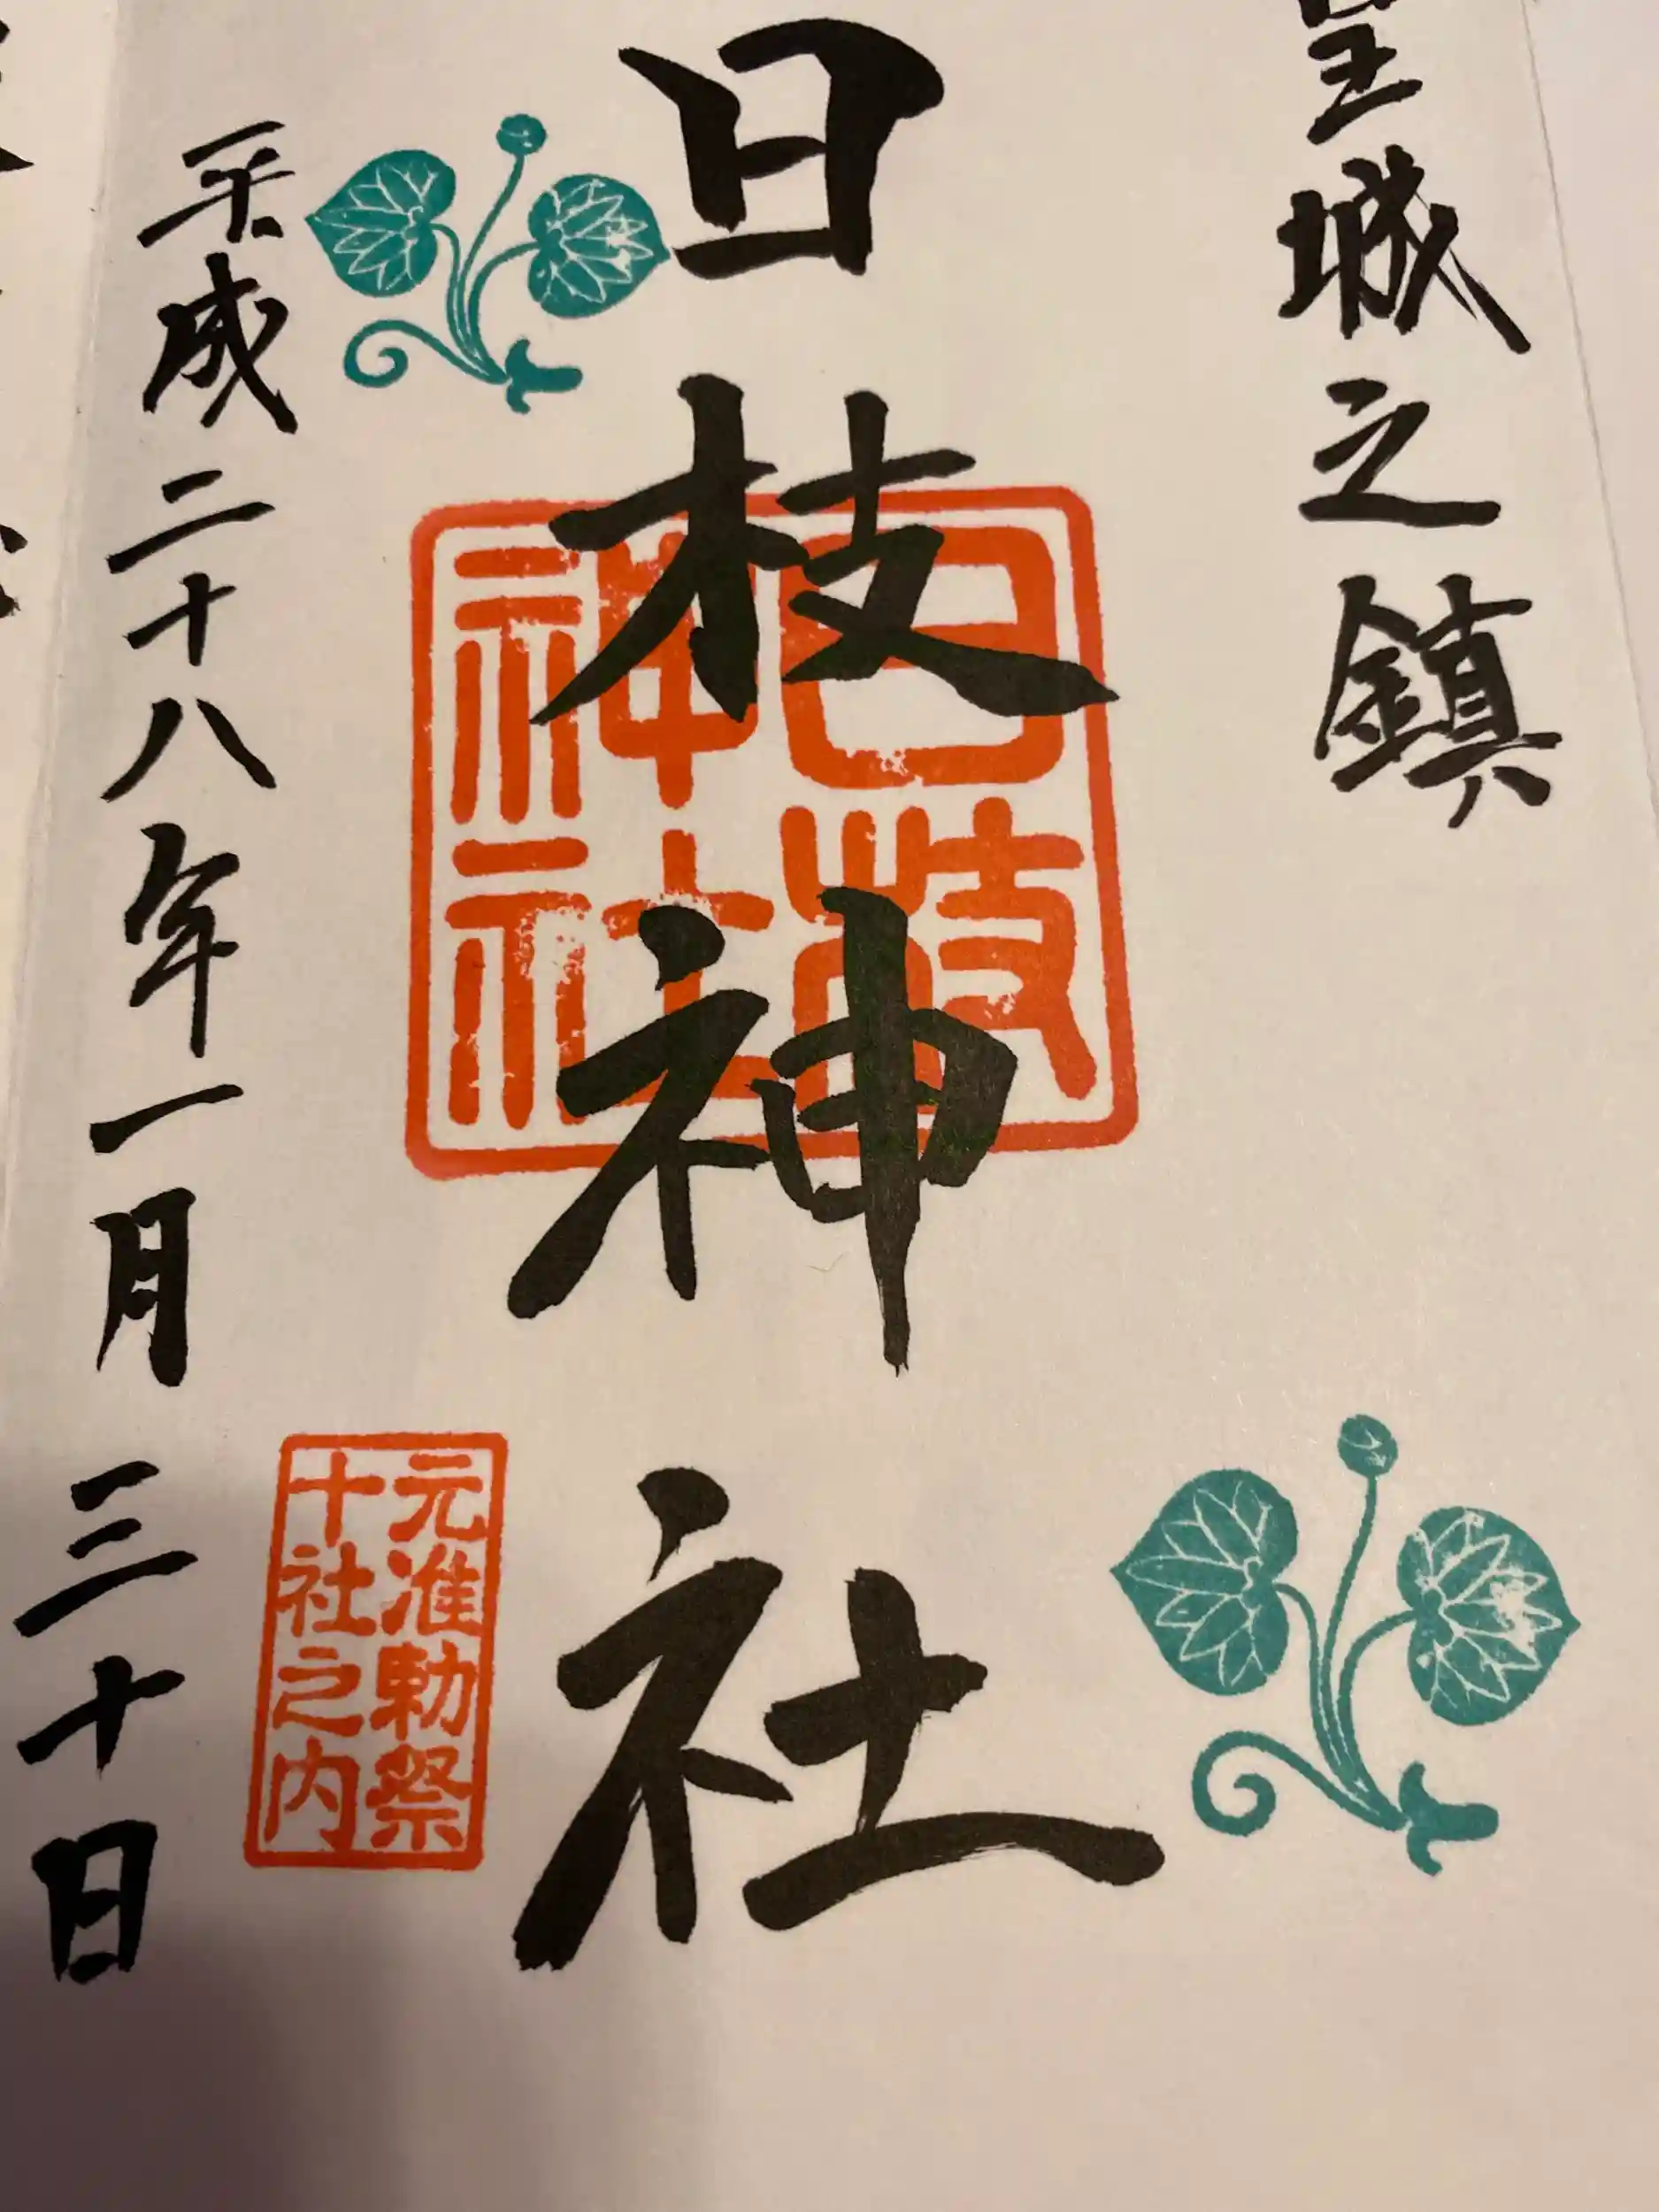 皇城之鎮
日枝神社
日枝
神社
元准勅祭
十社之内
平成二十八年一月三十日